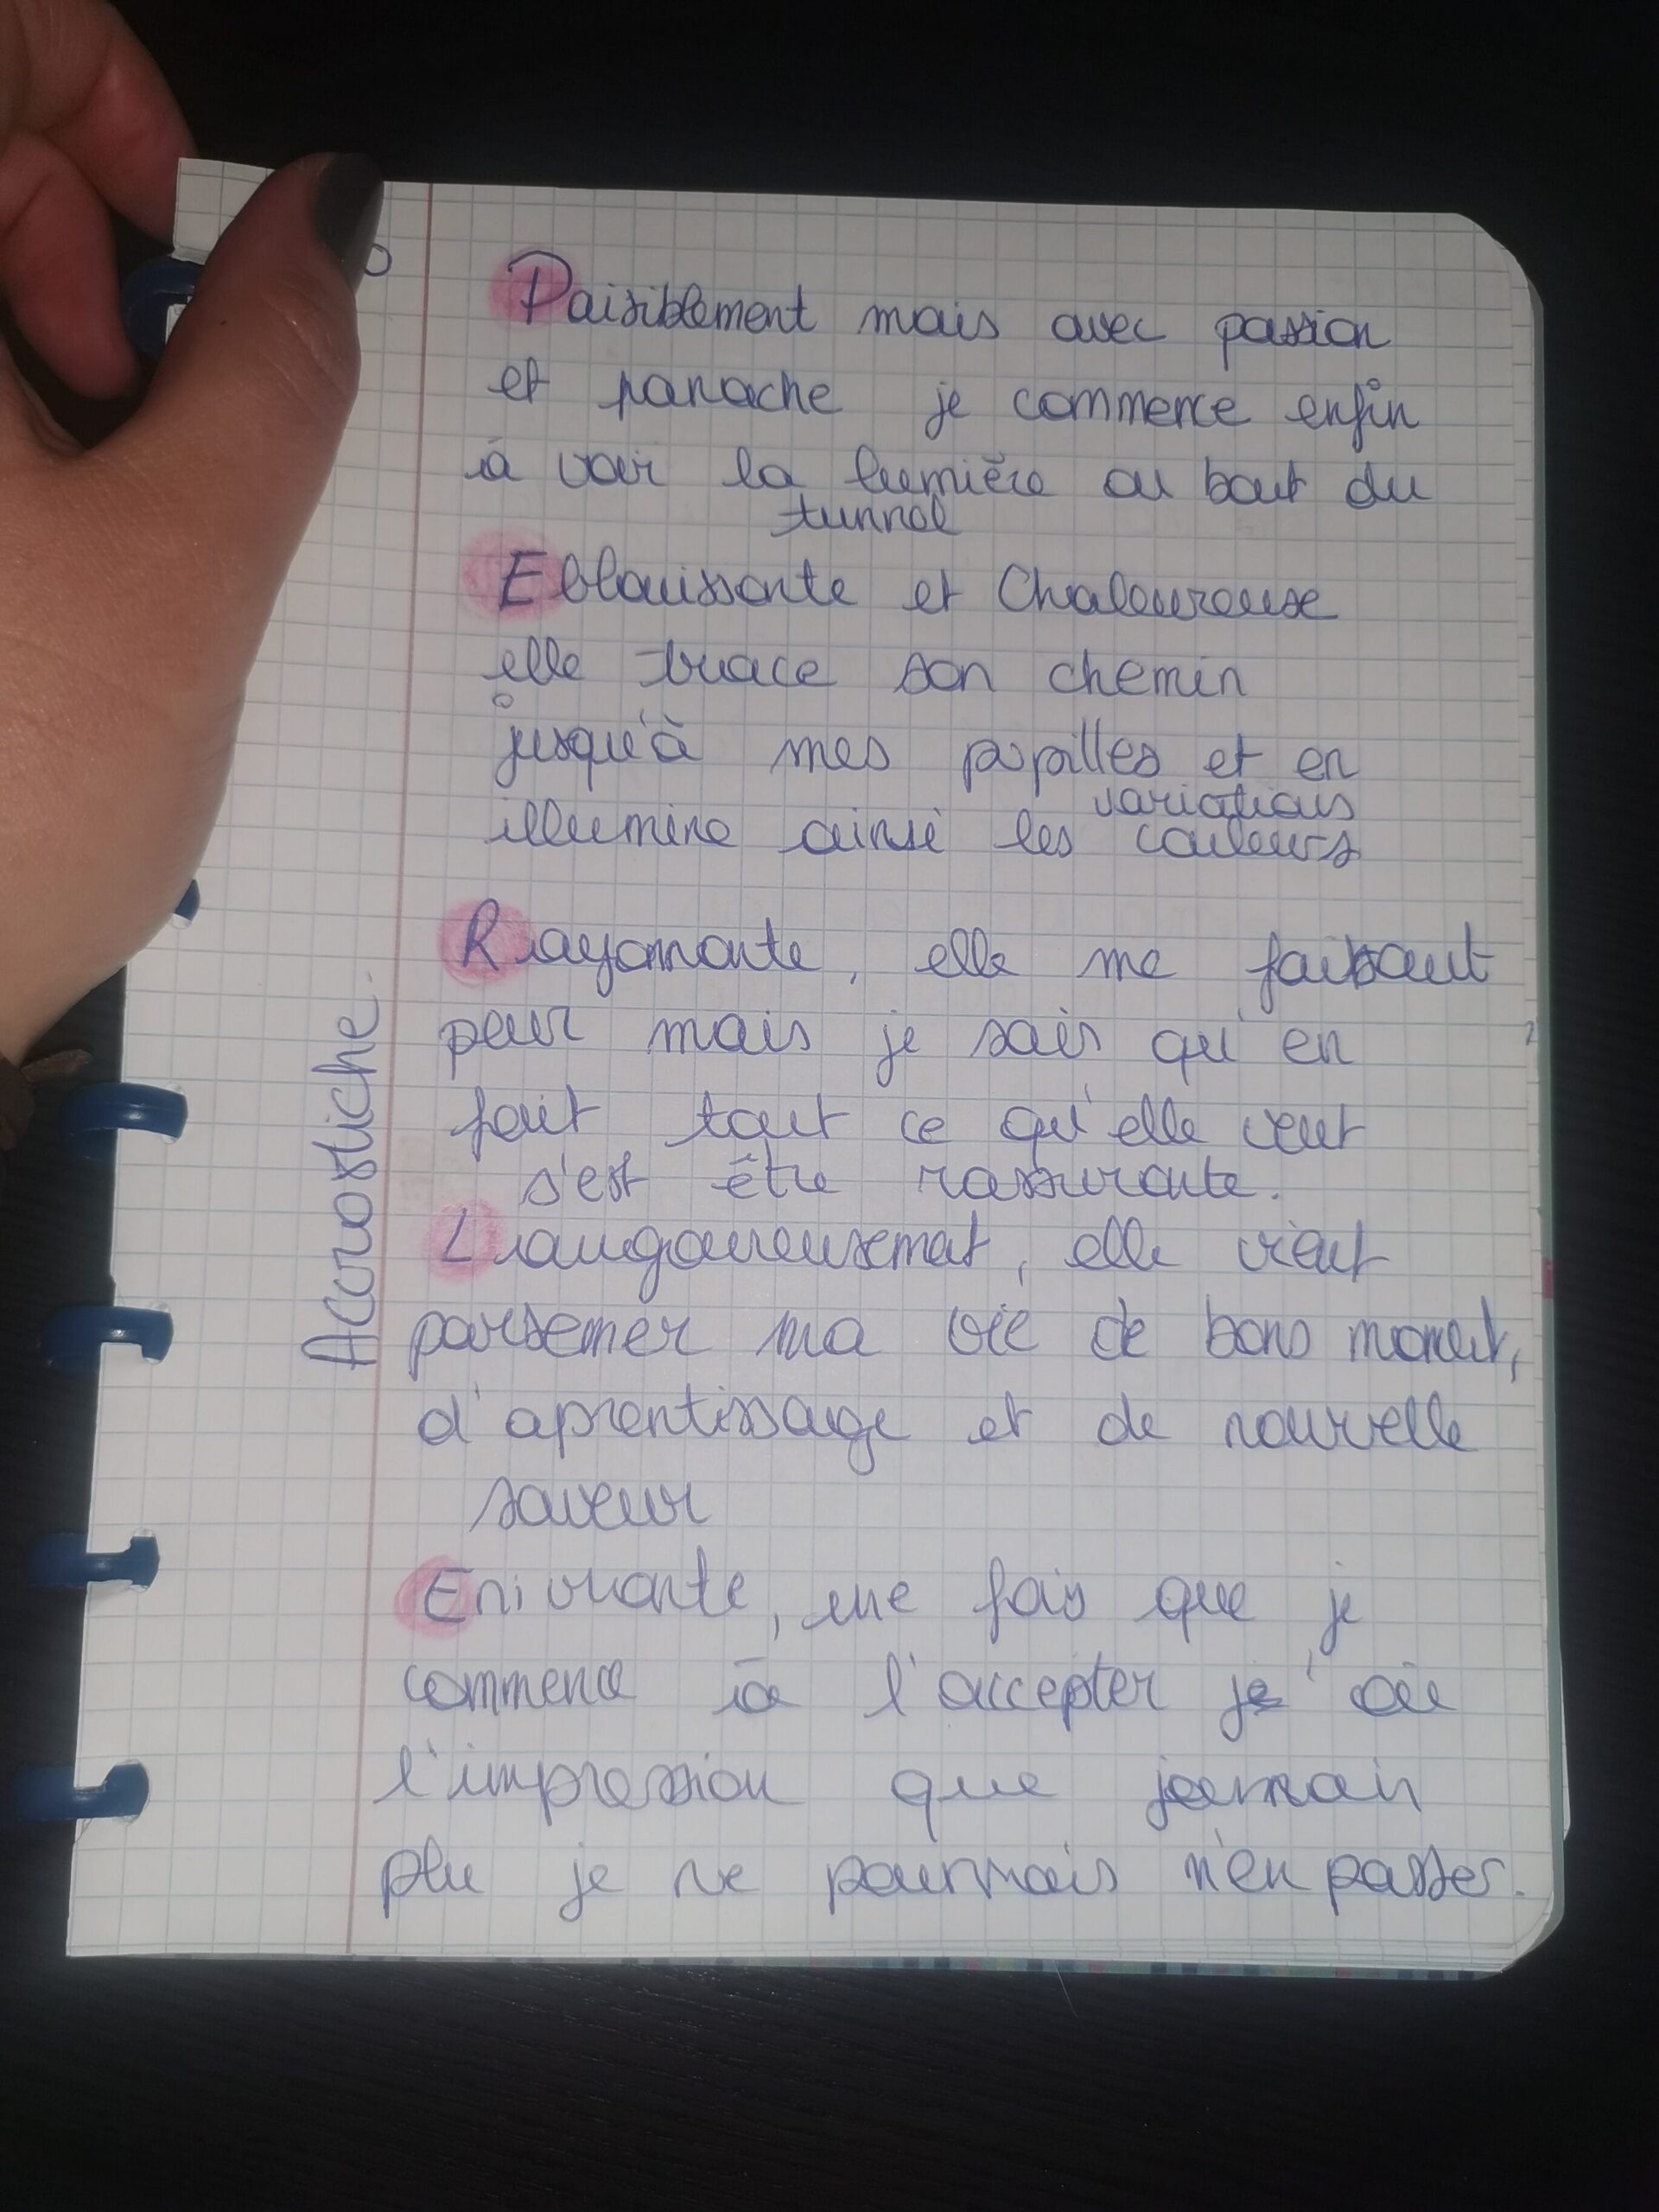 Paisiblement mais avec passion
et panache je commence enfin
à voir la lumière au bout du
tunnel
Eblouissante et Chaleureuse
elle trace son chemin
jusqu'à mes pupilles et en
illumine ainsi les variations
couleurs
Rayonnante, elle me faisait
peur mais je sais qu'en
fait tout ce qu'elle veut
s'est être rassurante.
Langoureusemat, elle vient
parsemer ma vie de bons moment,
d'aprentissage et de nouvelle
saveur
Enivrante, une fois que je
commence à l'accepter j'ai
l'impression que jamais
plu je ne pourrais n'en passer.
Accrostiche.